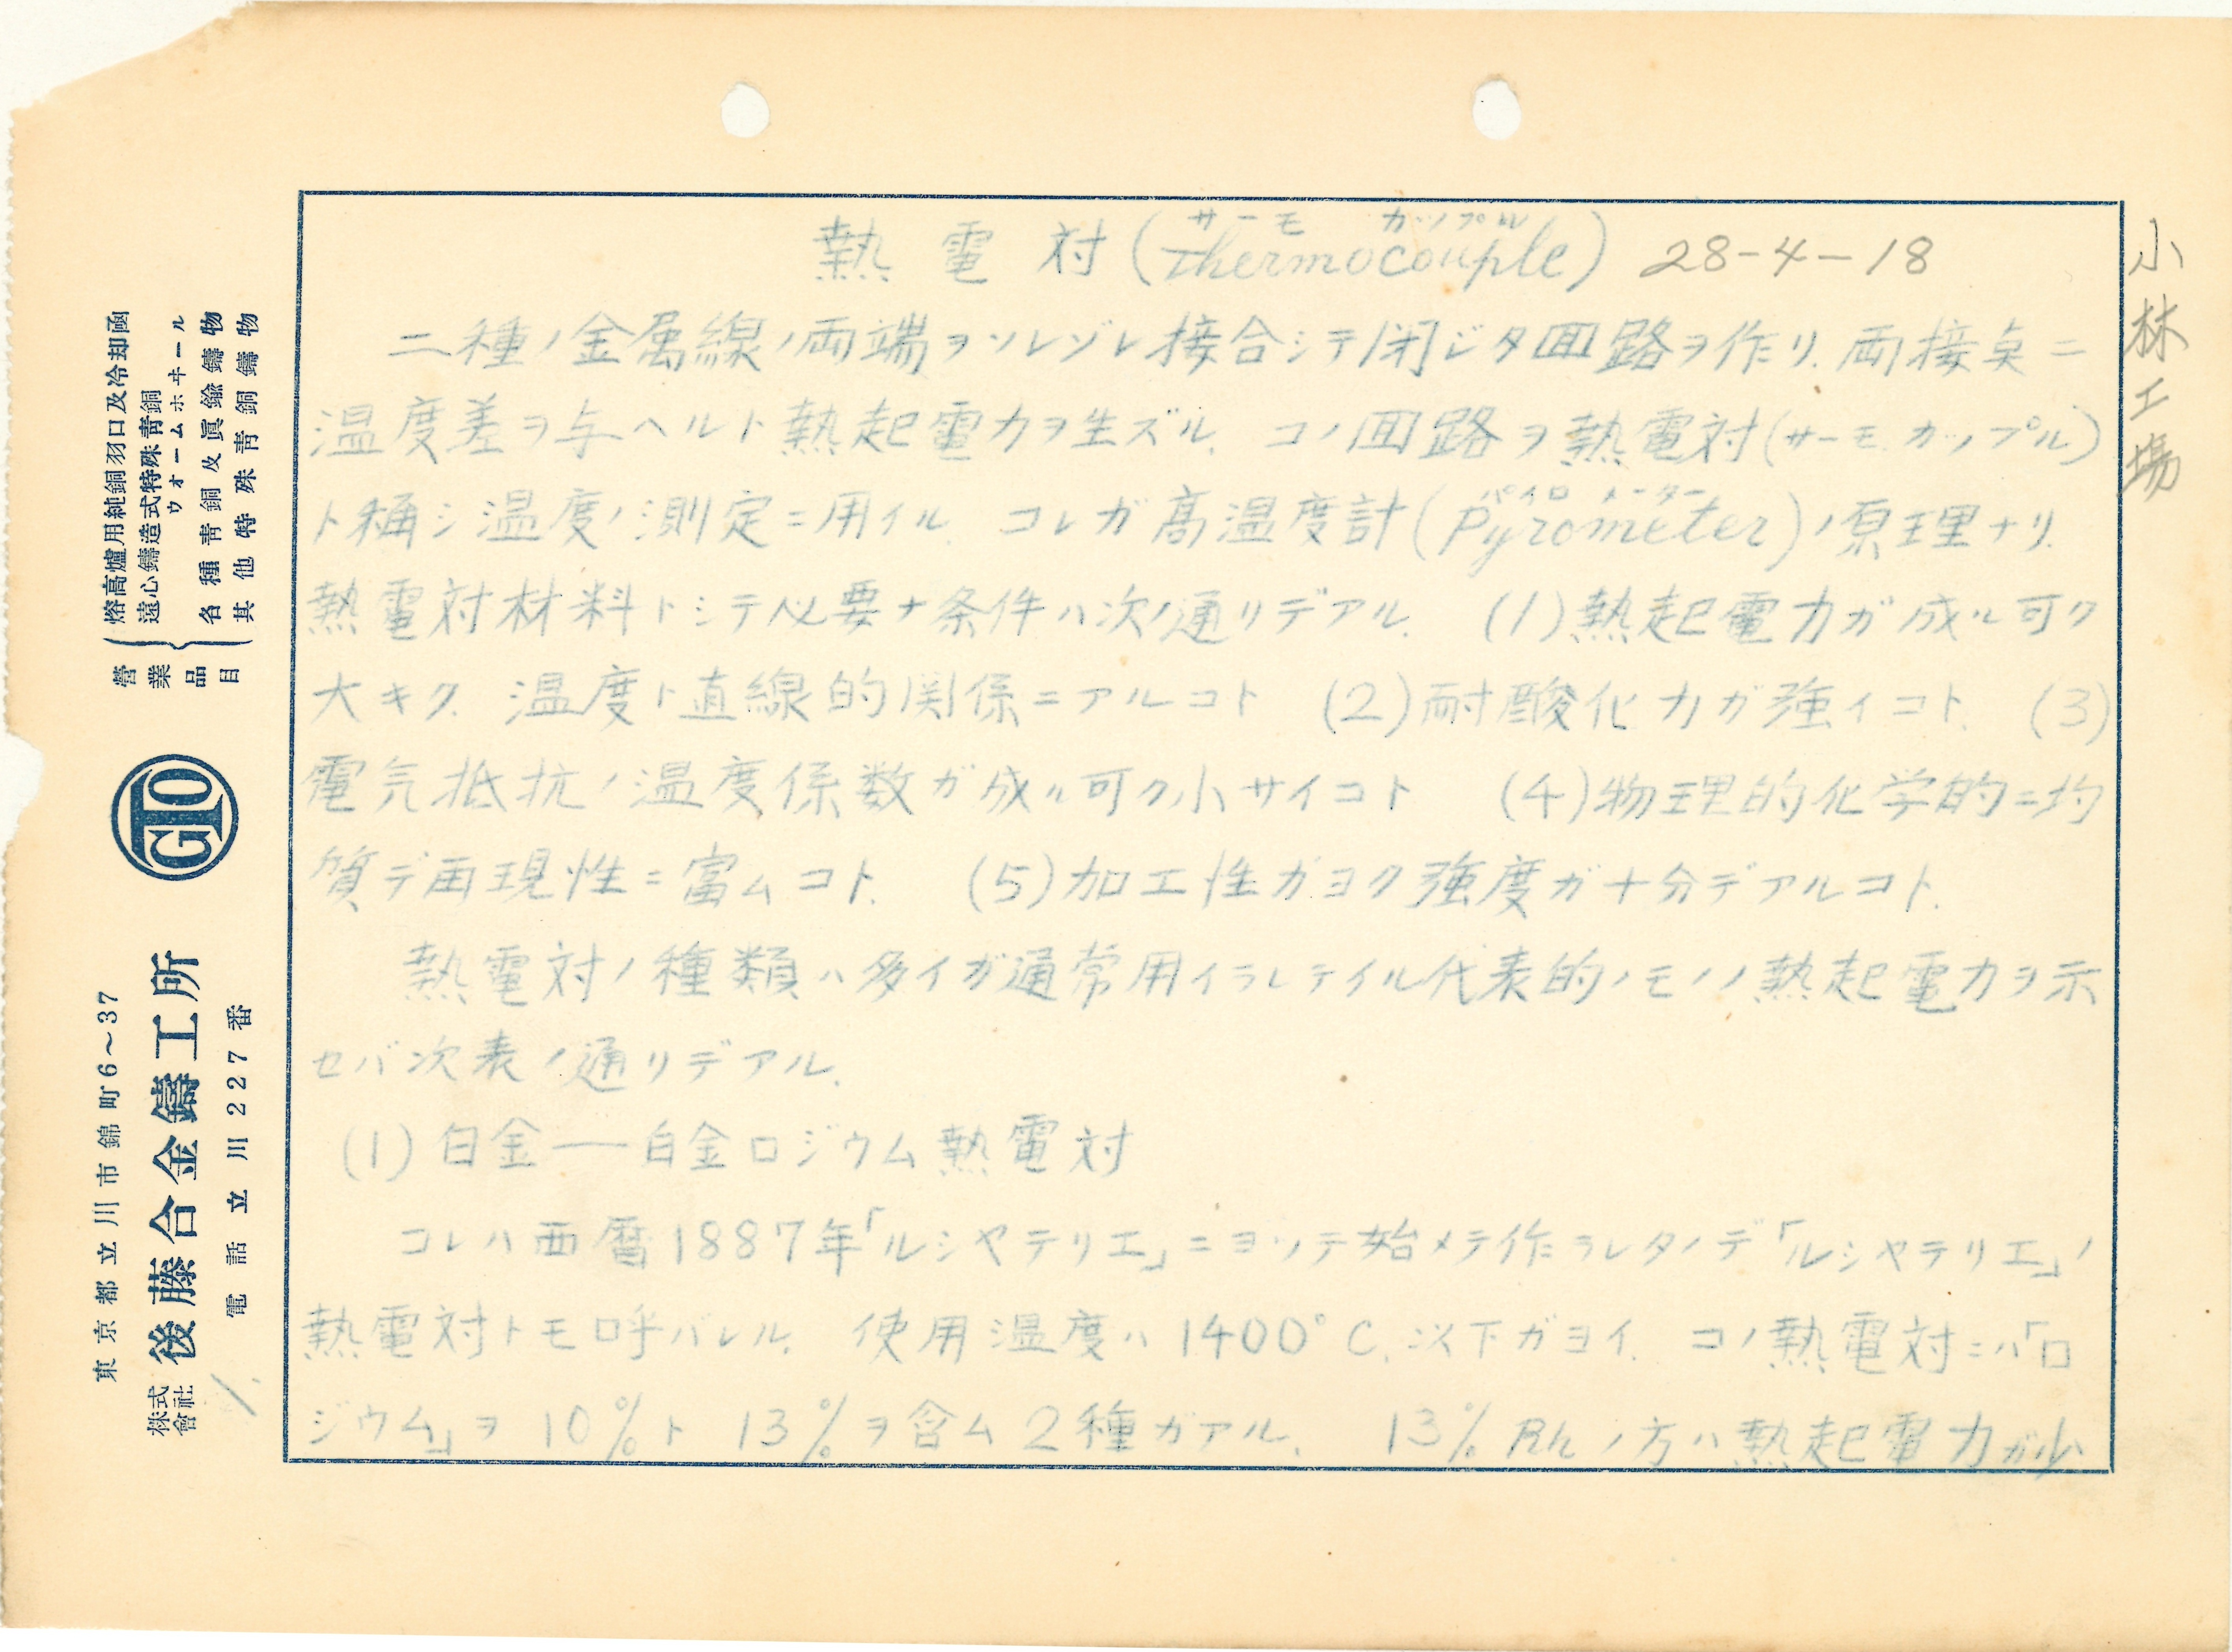 熱電対(Thermocouple) 28-4-18
サーモ カップル
小林工場
二種ノ金属線ノ両端ヲソレゾレ接合シテ閉ジタ回路ヲ作リ.両接点ニ
温度差ヲ与ヘルト熱起電力ヲ生ズル. コノ回路ヲ熱電対(サーモ.カップル)
ト稱シ温度ノ測定ニ用イル. コレガ高温度計(Pyrometer)ノ原理ナリ.
パイロ メーター
熱電対材料トシテ必要ナ条件ハ次ノ通リデアル. (1)熱起電力ガ成ル可ク
大キク. 温度ト直線的関係ニアルコト (2)耐酸化力ガ強イコト. (3)
電気抵抗ノ温度係数ガ成ル可ク小サイコト (4)物理的化学的ニ均
質デ再現性ニ富ムコト. (5)加工性ガヨク強度ガ十分デアルコト.
熱電対ノ種類ハ多イガ通常用イラレテイル代表的ノモノノ熱起電力ヲ示
セバ次表ノ通リデアル.
(1)白金―白金ロジウム熱電対
コレハ西暦1887年「ルシヤテリエ」ニヨッテ始メテ作ラレタノデ「ルシヤテリエ」ノ
熱電対トモ呼バレル. 使用温度ハ1400°C.以下ガヨイ. コノ熱電対ニハ「ロ
ジウム」ヲ 10%ト 13%ヲ含ム2種ガアル. 13% Rhノ方ハ熱起電力ガ少
營業品目
熔高爐用純銅羽口及冷却函
遠心鑄造式特殊青銅
ウオームホヰール
各種青銅及眞鍮鑄物
其他特殊青銅鑄物
GTO
東京都立川市錦町6～37
株式會社 後藤合金鑄工所
電話立川227番
1.